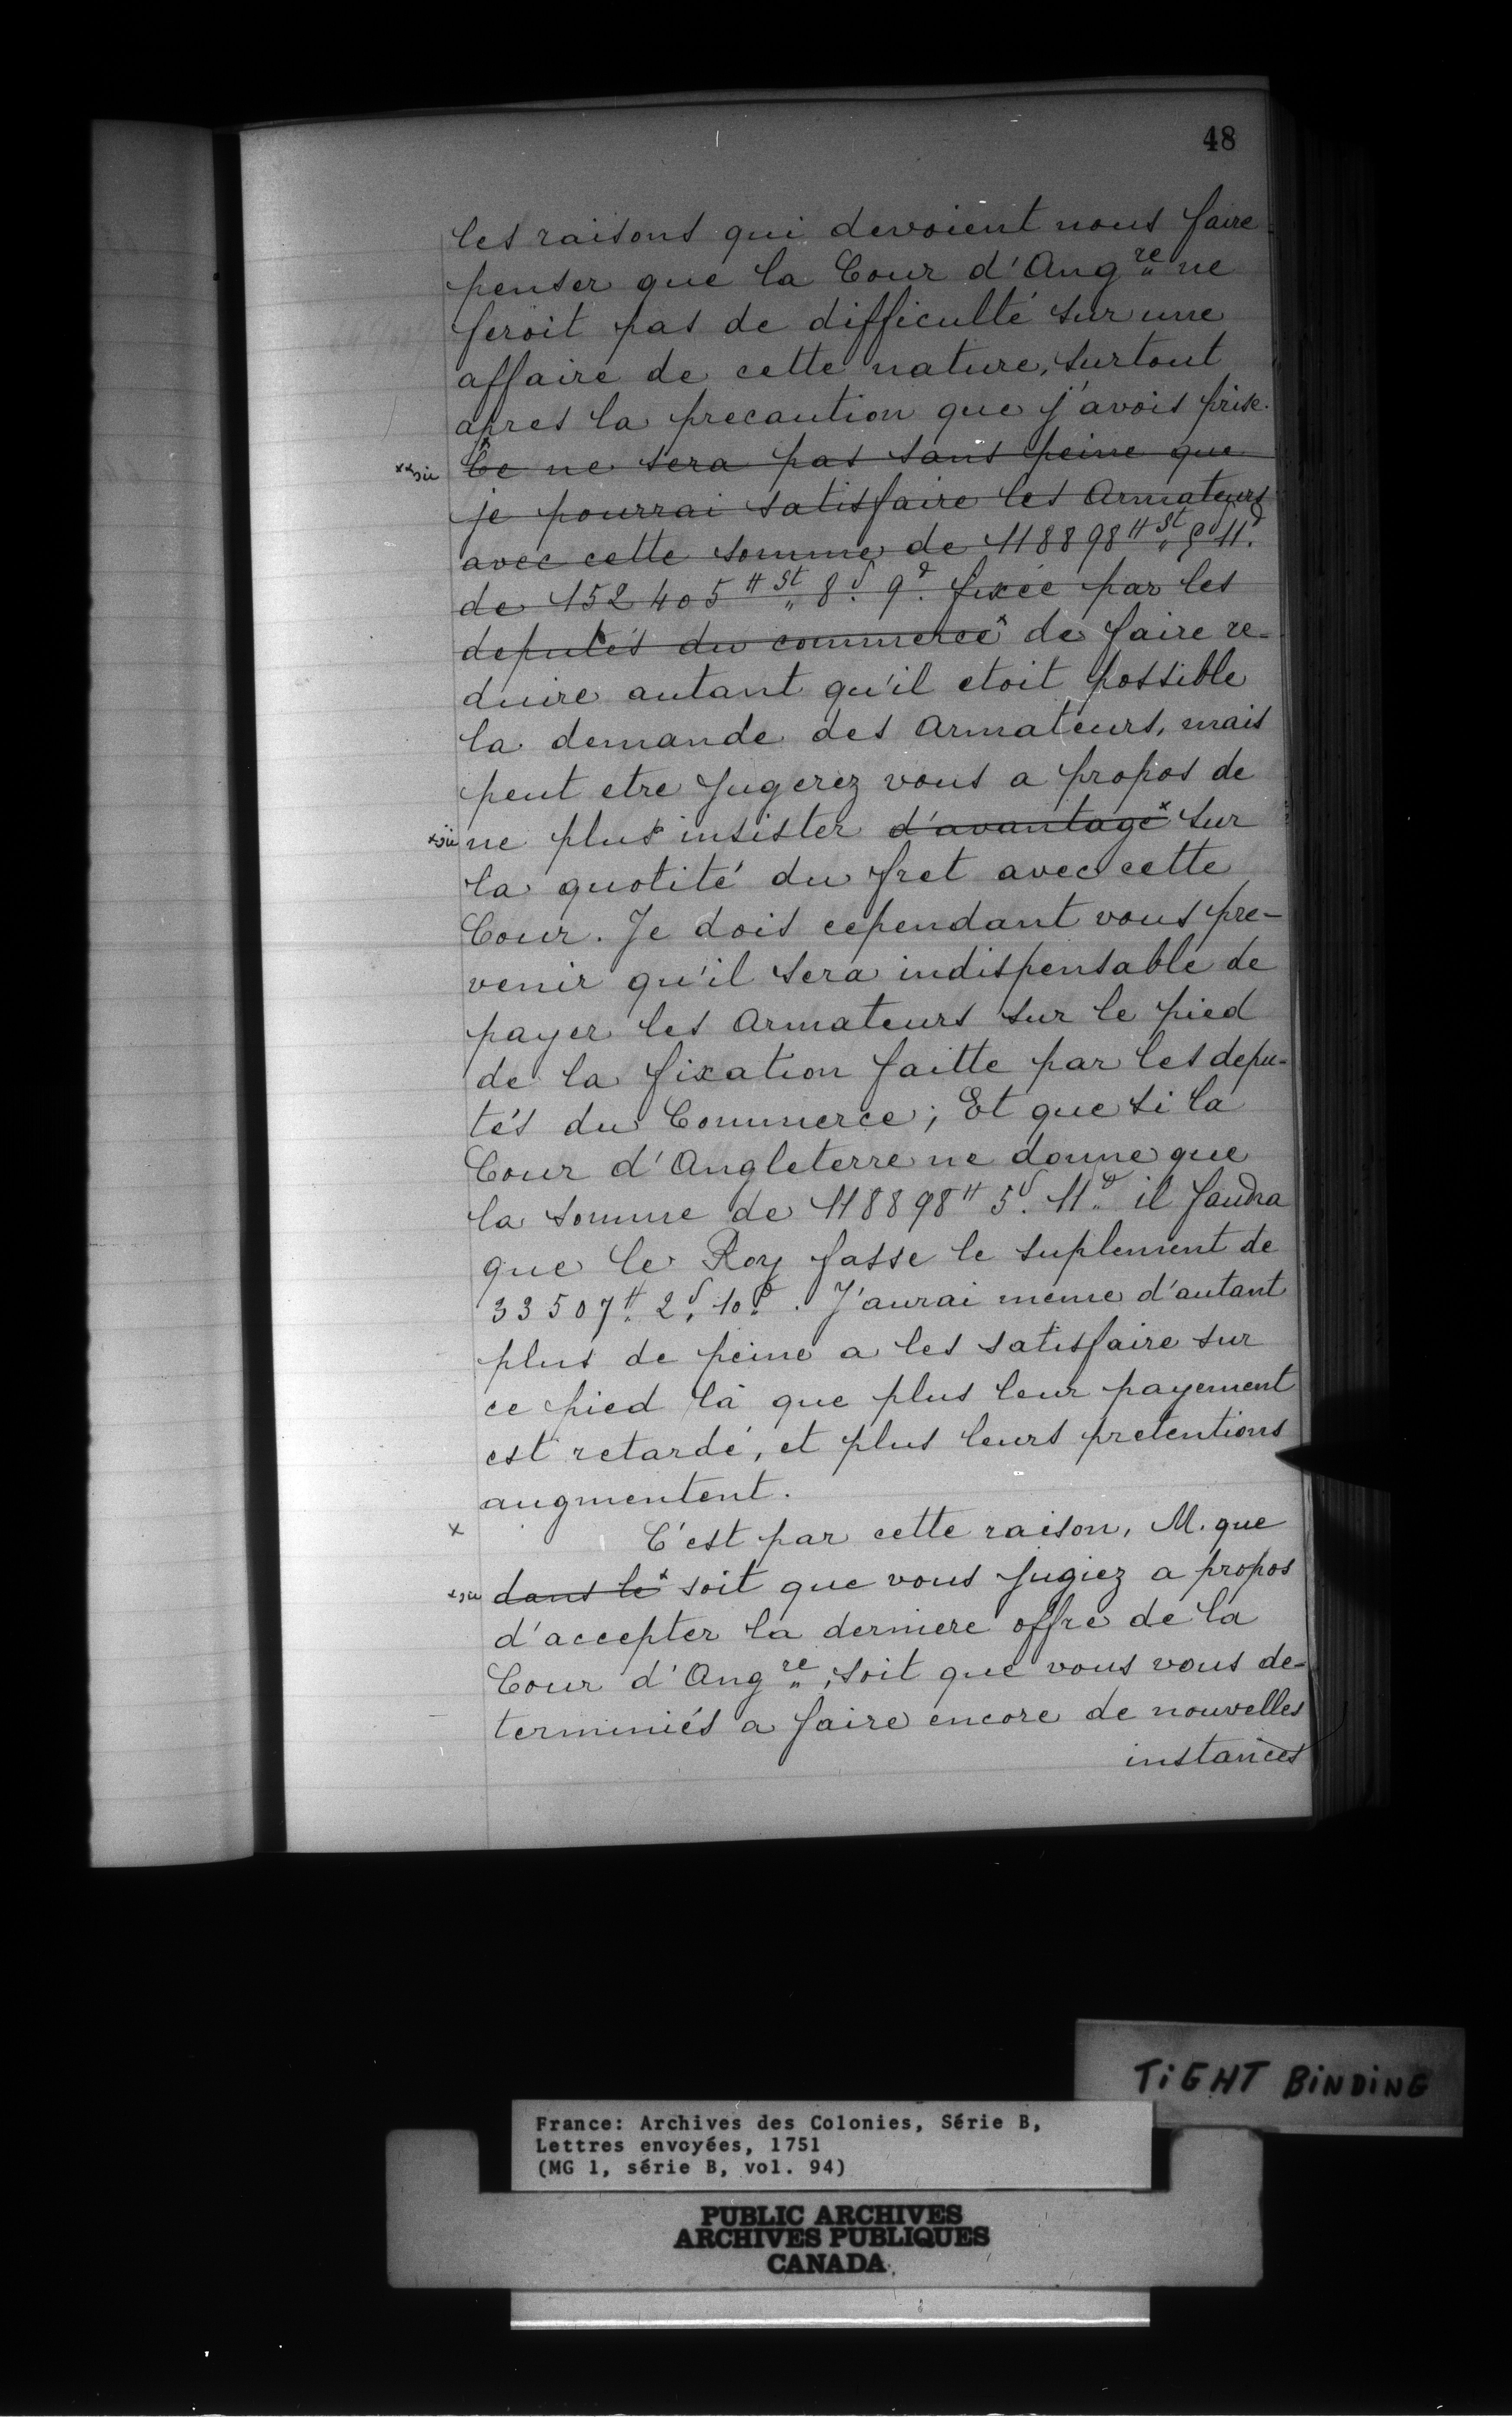 48
les raisons qui devoient nous faire
penser que la Cour d'Ang.re ne
feroit pas de difficulté sur une
affaire de cette nature, surtout
apres la precaution que j'avois prise.
xx sic Ce ne sera pas sans peine que
je pourrai satisfaire les Armateurs
avec cette somme de 118898 tt St. 5s 11d.
de 152405 tt St. 8s. 9d. fixée par les
deputés du commerce x de faire re-
duire autant qu'il etoit possible
la demande des armateurs, mais
peut etre Jugerez vous a propos de
x sic ne plus insister d'avantage x sur
la quotité du fret avec cette
Cour. Je dois cependant vous pre-
venir qu'il sera indispensable de
payer les Armateurs sur le pied
de la fixation faitte par les depu-
tés du Commerce; Et que si la
Cour d'Angleterre ne donne que
la somme de 118898 tt 5s. 11d. il faudra
que le Roy fasse le suplement de
33507 tt. 2s. 10d. J'aurai meme d'autant
plus de peine a les satisfaire sur
ce pied là que plus leur payement
est retardé, et plus leurs pretentions
augmentent.
x C'est par cette raison, M. que
x sic dans le x soit que vous Jugiez a propos
d'accepter la derniere offre de la
Cour d'Ang.re, soit que vous vous de-
terminiés a faire encore de nouvelles
instances
TIGHT BINDING
France: Archives des Colonies, Série B,
Lettres envoyées, 1751
(MG 1, série B, vol. 94)
PUBLIC ARCHIVES
ARCHIVES PUBLIQUES
CANADA